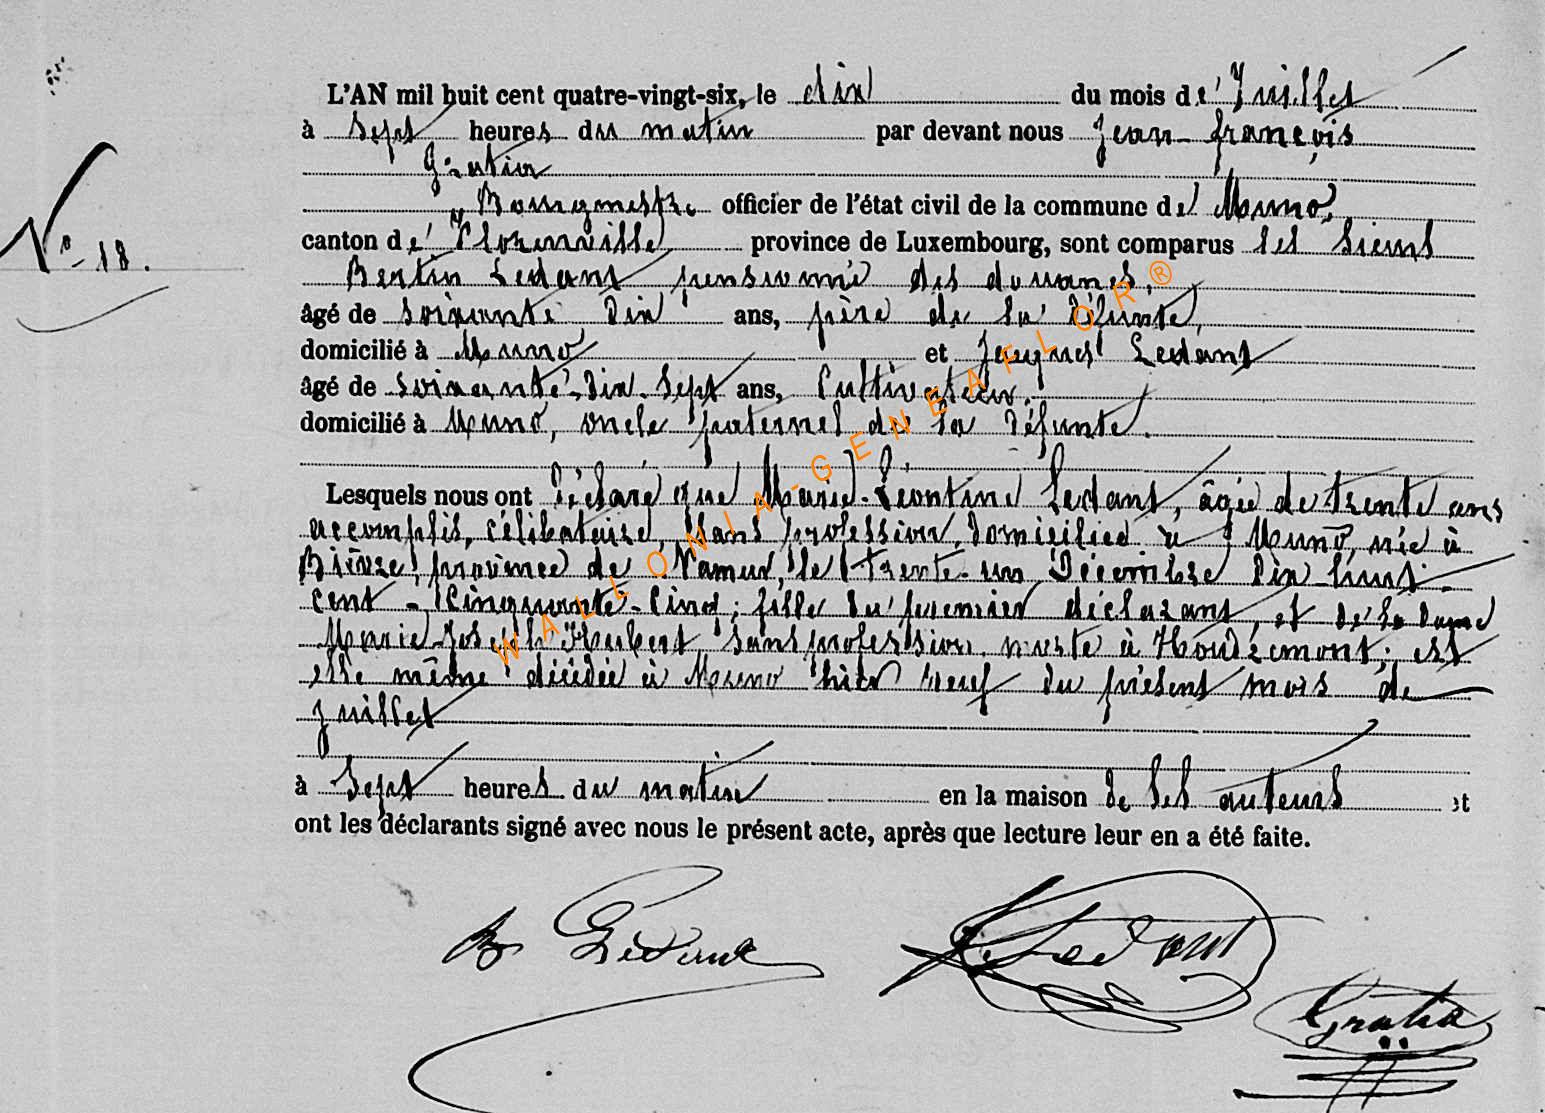 L'AN mil huit cent quatre-vingt-six, le dix du mois de Juillet
à Sept heures du matin par devant nous Jean-françois
Gratia
Bourgmestre officier de l'état civil de la commune de Muno,
canton de Florenville province de Luxembourg, sont comparus les Sieurs
N° 18.
Bertin Ledant pensionné des douanes,
âgé de Soixante Dix ans, père de la Défunte,
domicilié à Muno et Jacques Ledant
âgé de Soixante-Dix-Sept ans, Cultivateur,
domicilié à Muno, oncle paternel de la Défunte.
Lesquels nous ont Déclaré que Marie-Léontine Ledant, âgée de trente ans
accomplis, célibataire, sans profession, Domiciliée à Muno, née à
Bièvre, province de Namur, le trente-un Décembre Dix-huit-
cent-Cinquante-Cinq; fille du premier déclarant, et de la Dame
Marie Joseph Hubert, Sans profession, morte à Houdremont; est
elle même décédée à Muno hier neuf du présent mois de
juillet
à Sept heures du matin en la maison de Ses auteurs et
ont les déclarants signé avec nous le présent acte, après que lecture leur en a été faite.
B Ledant
J. Ledant
Gratia
WALLONIA-GENEAFLOR®